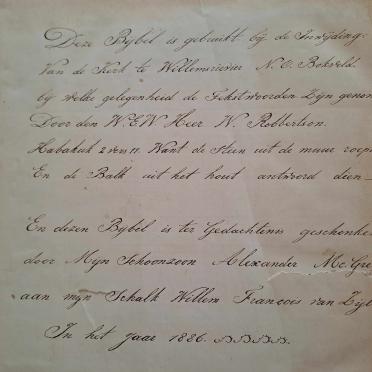 Deze Bijbel is gebruikt bij de Inwijding:
Van de Kerk te Willemsrivier N. O. Bokveld.
bij welke gelegenheid de Tekstwoorden Zijn genom
Door den W.E.W Heer W. Robbertson.
Habakuk 2 vers 11. Want de Steen uit de muur roept
En de Balk uit het hout antwoord dien—
En dezen Bijbel is ter Gedachtenis geschenke
door Mijn Schoonzoon Alexander Mc. Gre
aan mijn Schalk Willem Francois van Zijl
In het jaar 1886.